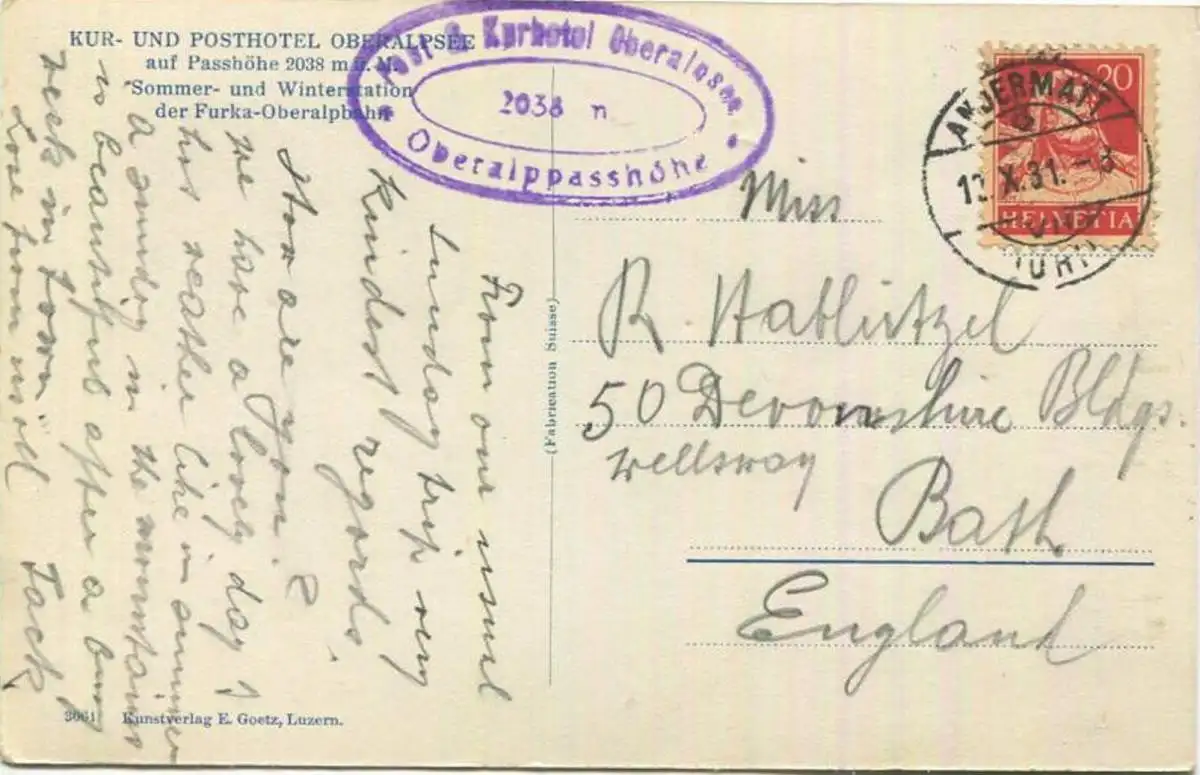 KUR- UND POSTHOTEL OBERALPSEE
auf Passhöhe 2038 m ü. M.
Sommer- und Winterstation
der Furka-Oberalpbahn
Post & Kurhotel Oberalpsee
2038 m
Oberalppasshöhe
20
HELVETIA
ANDERMATT
X.31.
(URI)
Miss
R. Hablützel
50 Devonshire Bldgs.
Wellsway
Bath
England
(Fabrication Suisse)
From our usual
Sunday trip very
Kindest regards.
How are you?
We have a lovely day
hot weather like in summer
a sunday in the mountains
is beautiful after a busy
week in town
Love from
Jack
3061 Kunstverlag E. Goetz, Luzern.